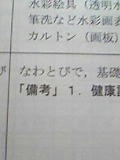 水彩絵具（透明水
筆洗など水彩画表
カルトン（画板）
び
なわとびで，基礎
「備考」１．健康記